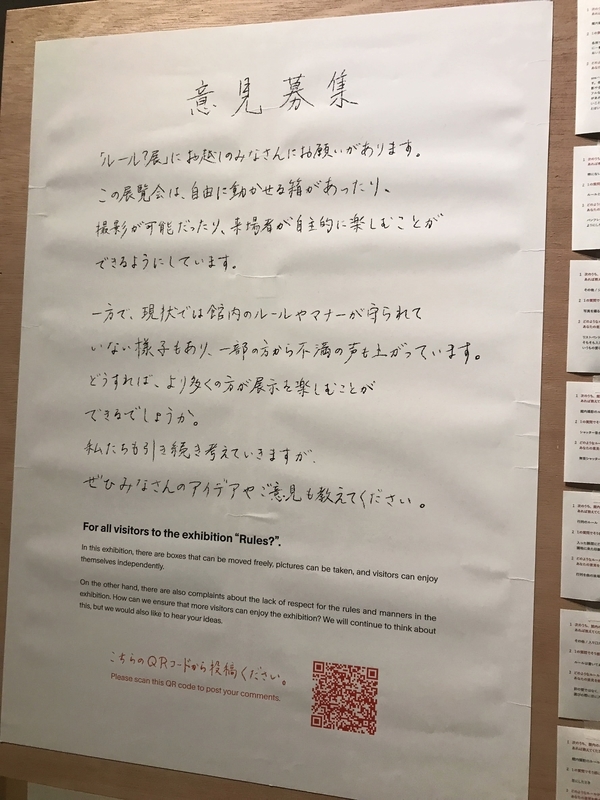 意見募集
「ルール?展」にお越しのみなさんにお願いがあります。
この展覧会は、自由に動かせる箱があったり、
撮影が可能だったり、来場者が自主的に楽しむことが
できるようにしています。
一方で、現状では館内のルールやマナーが守られて
いない様子もあり、一部の方から不満の声も上がっています。
どうすれば、より多くの方が展示を楽しむことが
できるでしょうか。
私たちも引き続き考えていきますが、
ぜひみなさんのアイデアやご意見も教えてください。
For all visitors to the exhibition “Rules?”.
In this exhibition, there are boxes that can be moved freely, pictures can be taken, and visitors can enjoy
themselves independently.
On the other hand, there are also complaints about the lack of respect for the rules and manners in the
exhibition. How can we ensure that more visitors can enjoy the exhibition? We will continue to think about
this, but we would also like to hear your ideas.
こちらのQRコードから投稿ください。
Please scan this QR code to post your comments.